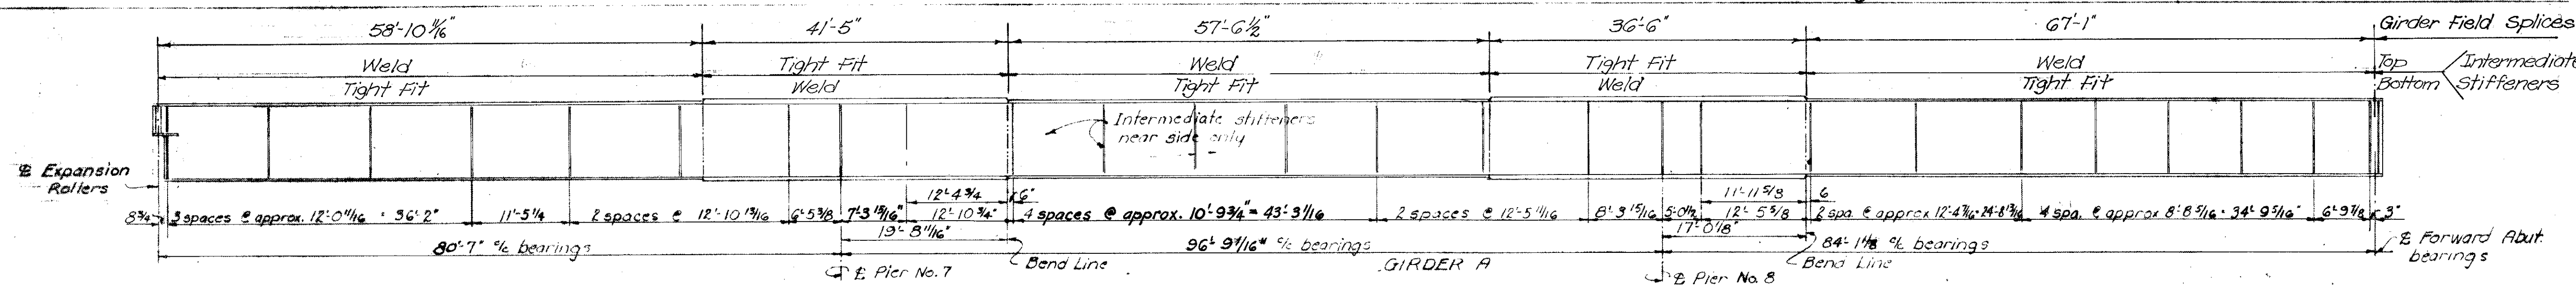 58'-10 11/16"
41'-5"
57'-6 1/2"
36'-6"
67'-1"
Girder Field Splices
Weld
Tight Fit
Weld
Tight Fit
Weld
Top
Intermediate
Tight Fit
Weld
Tight Fit
Weld
Tight Fit
Bottom
Stiffeners
Intermediate stiffeners
near side only
℄ Expansion
Rollers
12'-4 3/4
6"
11'-11 5/8
6
8 3/4
3 spaces @ approx. 12'-0 11/16 = 36'-2"
11'-5 1/4
2 spaces @ 12'-10 13/16
6'-5 3/8
7'-3 15/16"
12'-10 3/4"
4 spaces @ approx. 10'-9 3/4" = 43'-3 1/16
2 spaces @ 12'-5 11/16
8'-3 15/16
5'-0 1/2
12'-5 5/8
2 spa. @ approx 12'-4 7/16 = 24'-8 13/16
4 spa. @ approx 8'-8 5/16 = 34'-9 5/16"
6'-9 7/8
3"
19'-8 11/16"
17'-0 1/8"
80'-7" c/c bearings
96'-9 7/16" c/c bearings
84'-1 1/8 c/c bearings
℄ Forward Abut.
bearings
℄ Pier No. 7
Bend Line
GIRDER A
℄ Pier No. 8
Bend Line